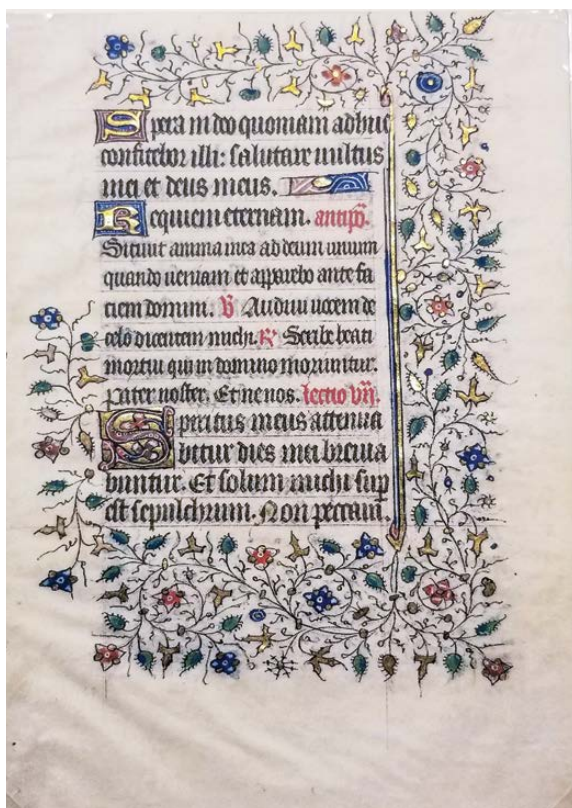 Spera in deo quoniam adhuc
confitebor illi: salutare uultus
mei et deus meus.
Requiem eternam. antiph̄.
Sitiuit anima mea ad deum uiuum
quando ueniam et apparebo ante fa
ciem domini. V̄ Audiui uocem de
celo dicentem michi. R̄ Scribe beati
mortui qui in domino moriuntur.
Pater noster. Et ne nos. lectio vii.
Spiritus meus attenua
bitur dies mei breuia
buntur. Et solum michi sup̄
est sepulchrum. Non peccaui.